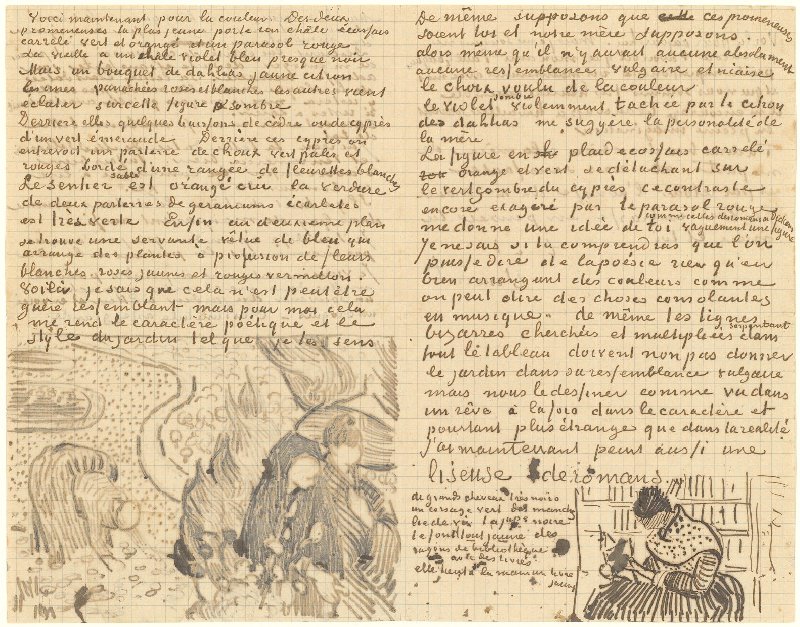 Voici maintenant pour la couleur Des deux
promeneuses la plus jeune porte un châle écossais
carrelé vert et orangé et un parasol rouge
La vieille a un châle violet bleu presque noir
Mais un bouquet de dahlias jaune citron
les unes panachées roses et blanches les autres vient
éclater sur cette figure sombre
Derrière elles quelques buissons de cèdre ou de cyprès
d'un vert émeraude Derrière ces cyprès on
entrevoit un parterre de choux verts pâles et
rouges bordé d'une rangée de fleurettes blanches
Le sentier sablé est orangé cru la verdure
de deux parterres de geraniums écarlates
est très verte Enfin au deuxième plan
se trouve une servante vêtue de bleu qui
arrange des plantes à profusion de fleurs
blanches roses jaunes et rouges vermillon.
Voilà je sais que cela n'est peut être
guère ressemblant mais pour moi cela
me rend le caractère poétique et le
style du jardin tel que je les sens
De même supposons que ces promeneuses
soient toi et notre mère supposons.
alors même qu'il n'y aurait aucune absolument
aucune ressemblance vulgaire et niaise
le choix voulu de la couleur
le violet sombre violemment tachée par le citron
des dahlias me suggère la personalité de
la mère.
La figure en plaid ecossais carrelé
orange et vert se détachant sur
le vert sombre du cyprès ce contraste
encore exagéré par le parasol rouge
me donne une idée de toi vaguement une figure
comme celles des romans de Dickens
Je ne sais si tu comprendras que l'on
puisse dire de la poésie rien qu'en
bien arrangeant des couleurs comme
on peut dire des choses consolantes
en musique. de même les lignes
bizarres cherchées et multipliées serpentant dans
tout le tableau doivent non pas donner
le jardin dans sa ressemblance vulgaire
mais nous le dessiner comme vu dans
un rêve à la fois dans le caractère et
pourtant plus étrange que dans la réalité
J'ai maintenant peint aussi une
liseuse de romans.
de grands cheveux très noirs
un corsage vert des manches
lie de vin la jupe noire
le fond tout jaune des
rayons de bibliothèque
avec des livres
elle tient à la main un livre
jaune